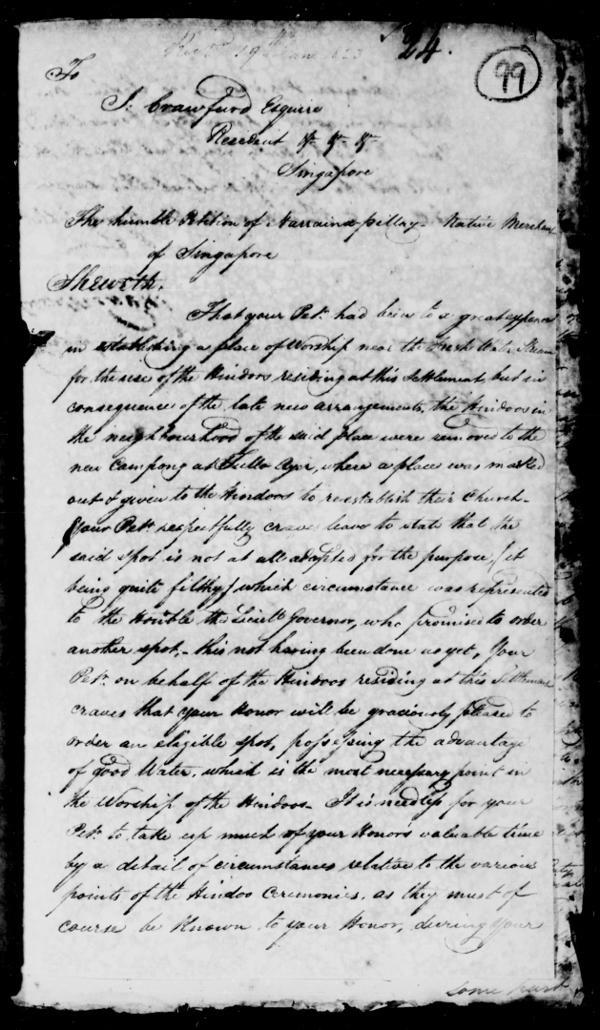 24.
99
To
J. Crawfurd Esquire
Resident &c &c &c
Singapore
The humble Petition of Narraina Pillay - Native Merchant
of Singapore
Sheweth,
That your Petr. had been to a great expence
in establishing a place of Worship near the Fresh Water Stream
for the use of the Hindoos residing at this Settlement, but in
consequence of the late new arrangements, the Hindoos in
the neighbourhood of the said place were removed to the
new Campong at Tullo Ayer, where a place was marked
out & given to the Hindoos to re-establish their Church.
Your Petr. respectfully craves leave to state that the
said spot is not at all adapted for the purpose, (it
being quite filthy) which circumstance was represented
to the Hon'ble the Lieutt Governor, who promised to order
another spot, - this not having been done as yet, Your
Petr. on behalf of the Hindoos residing at this Settlement
craves that your Honor will be graciously pleased to
order an eligible spot, possessing the advantage
of good Water, which is the most necessary point in
the Worship of the Hindoos. It is needless for your
Petr. to take up much of your Honor's valuable time
by a detail of circumstances relative to the various
points of the Hindoo Ceremonies, as they must of
course be known to your Honor, during your